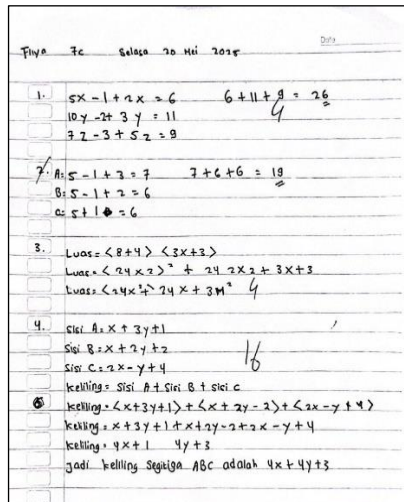 Date
Fliya 7c Selasa 20 Mei 2025
1. 5x - 1 + 2x = 6 6 + 11 + 9 = 26
10y - 2+ 3y = 11 4
7z - 3 + 5z = 9
2. A: 5 - 1 + 3 = 7 7 + 6 + 6 = 19
B: 5 - 1 + 2 = 6
C: 5 + 1 = 6
3. Luas = <8+4> <3x+3>
Luas = <24x2>² + 24 2x2 + 3x+3
Luas = <24x²+> 24x + 3M² 4
4. Sisi A = x + 3y + 1
Sisi B = x + 2y + 2 16
Sisi C = 2x - y + 4
Keliling = Sisi A + Sisi B + Sisi C
Keliling = <x+3y+1> + <x + 2y - 2> + <2x - y + 4>
Keliling = x + 3y + 1 + x + 2y - 2 + 2x - y + 4
Keliling = 4x + 1 4y + 3
Jadi keliling segitiga ABC adalah 4x + 4y + 3